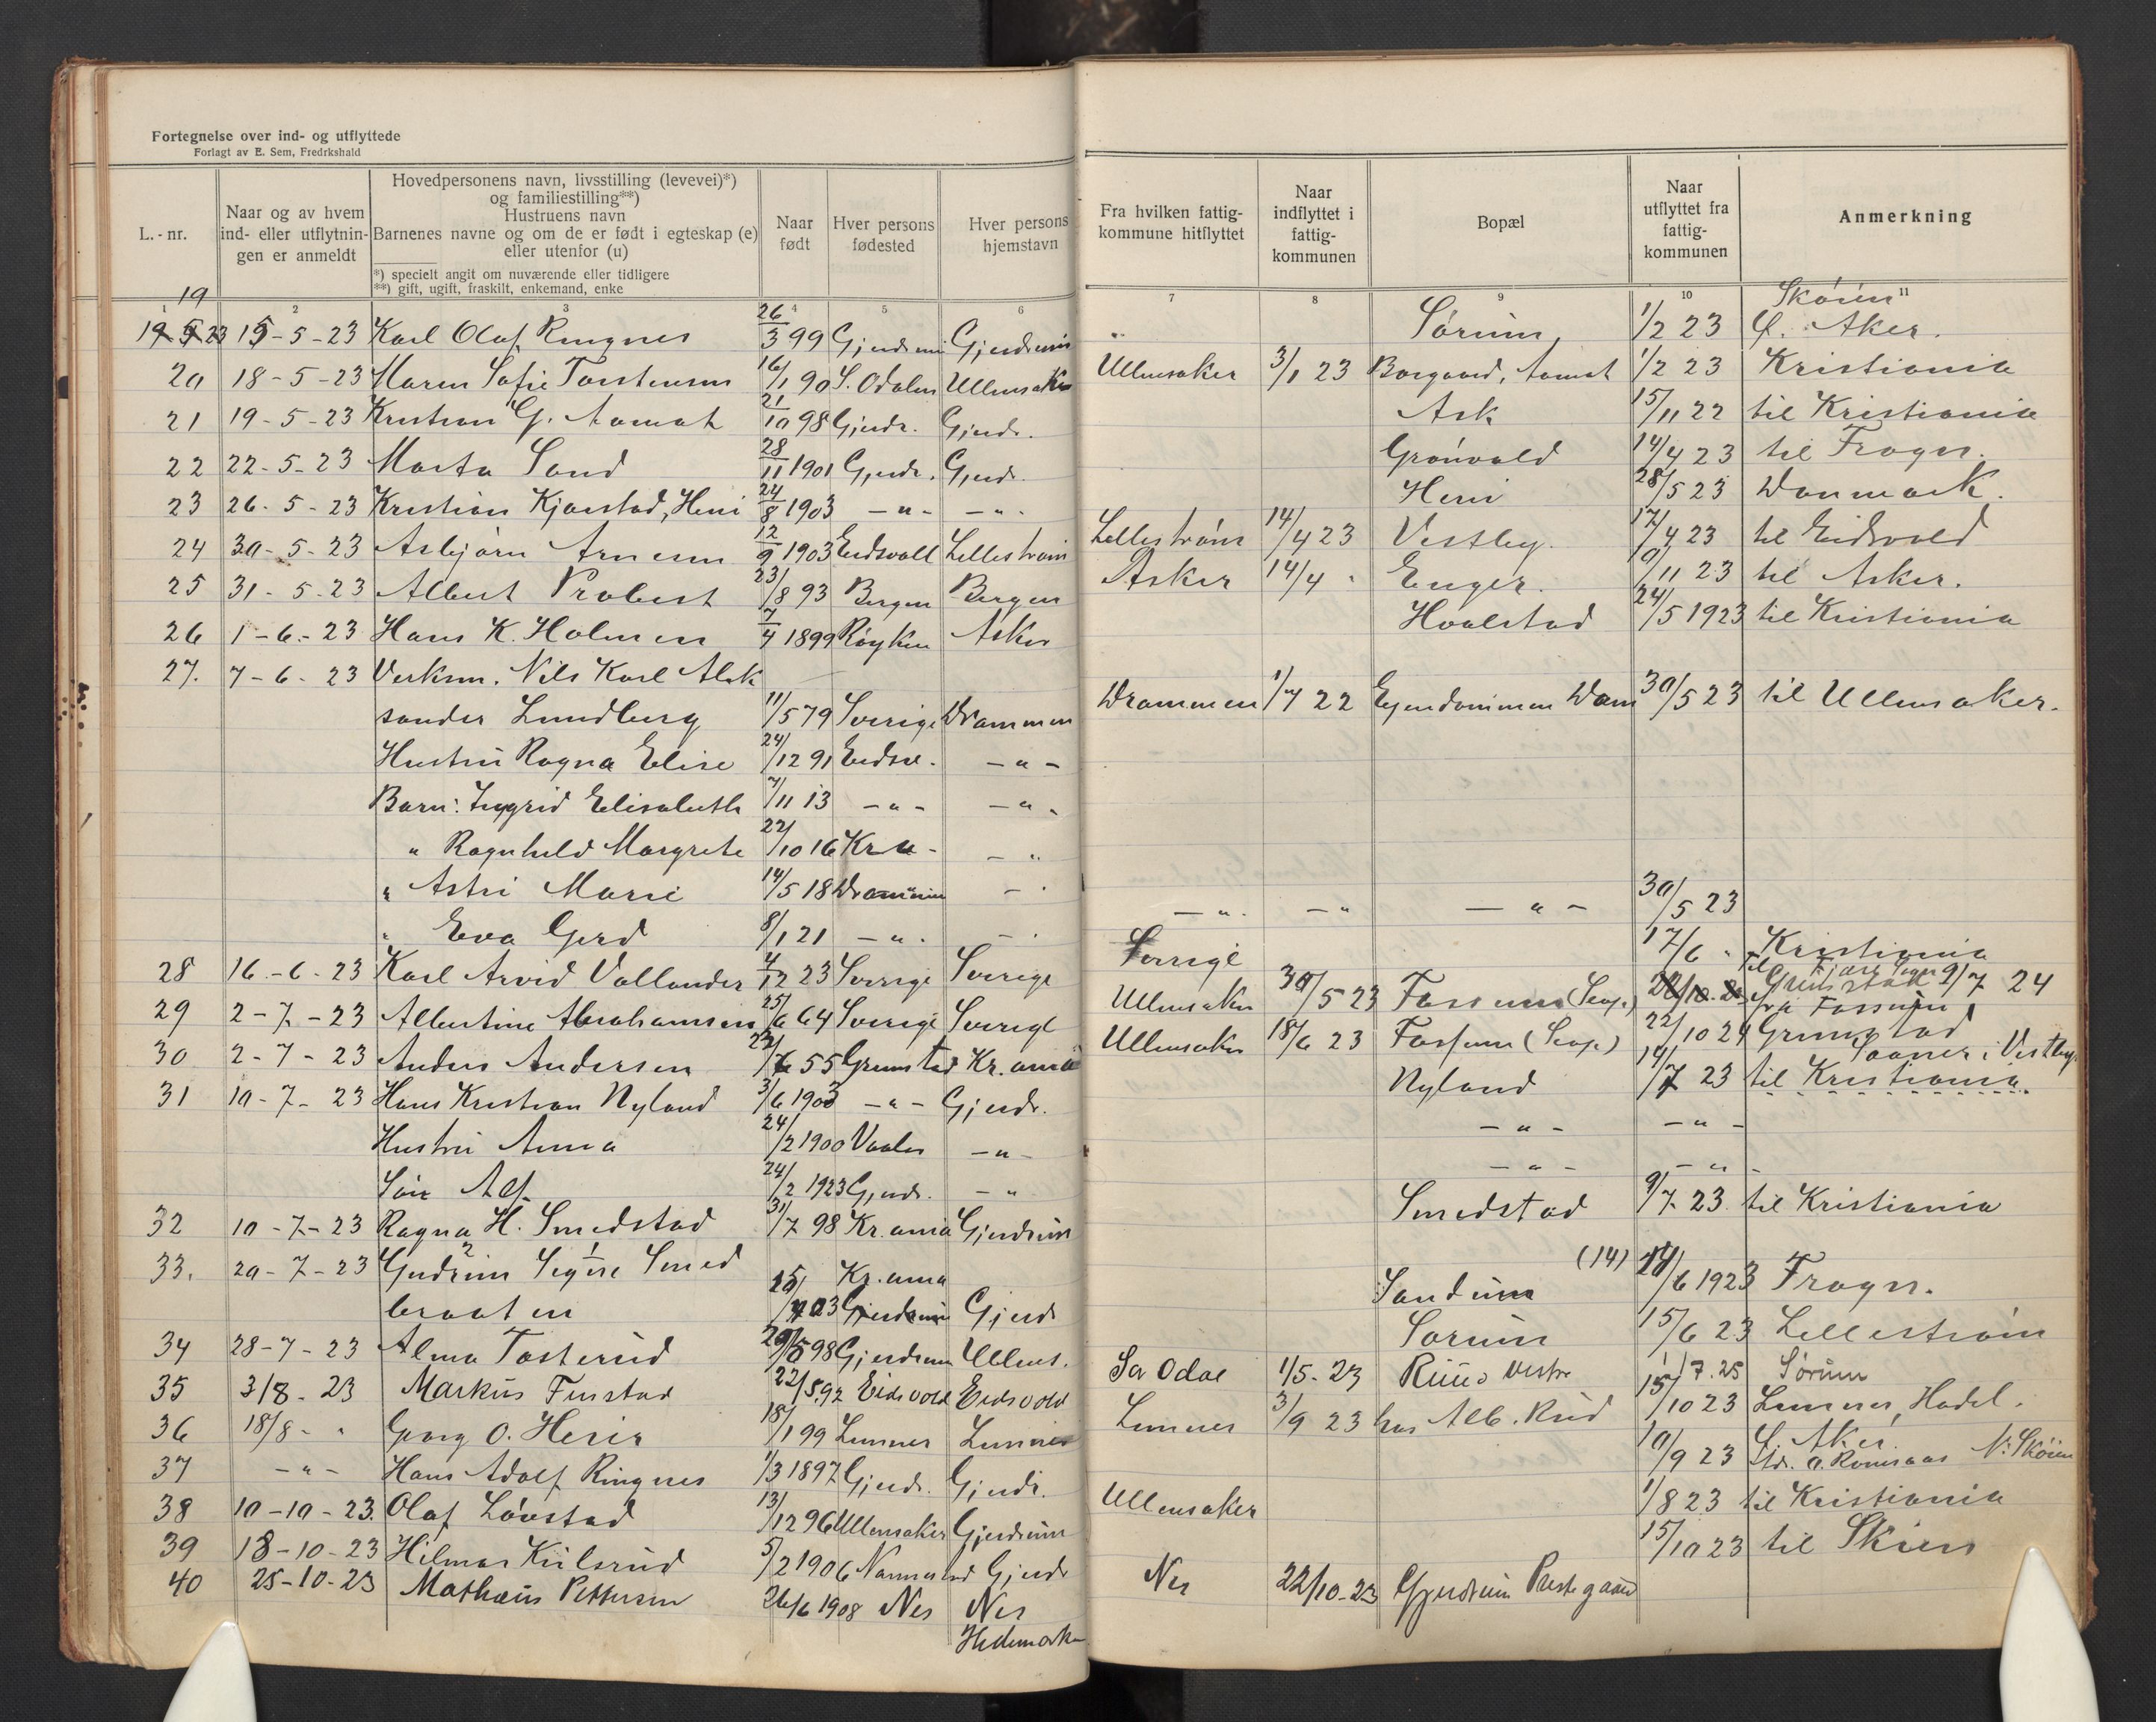 Fortegnelse over ind- og utflyttede
Forlagt av E. Sem, Fredrkshald
L.-nr.
Naar og av hvem ind- eller utflytnin-gen er anmeldt
Hovedpersonens navn, livsstilling (levevei)*)
og familiestilling**)
Hustruens navn
Barnenes navne og om de er født i egteskap (e)
eller utenfor (u)
*) specielt angit om nuværende eller tidligere
**) gift, ugift, fraskilt, enkemand, enke
Naar født
Hver persons fødested
Hver persons hjemstavn
Fra hvilken fattig-kommune hitflyttet
Naar indflyttet i fattig-kommunen
Bopæl
Naar utflyttet fra fattig-kommunen
Anmerkning
1 2 3 4 5 6 7 8 9 10 11
19 15-5-23 Karl Olaf Ringnes 26/3 99 Gjerdrum Gjerdrum Sørum 1/2 23 Skøien Ø. Aker.
20 18-5-23 Maren Sofie Torstensen 16/1 90 S. Odalen Ullensaker Ullensaker 3/1 23 Borgaard, Aamot 1/2 23 Kristiania
21 19-5-23 Kristian G. Aamot 21/10 98 Gjerdr. Gjerdr. Ask 15/11 22 til Kristiania
22 22-5-23 Marta Sand 28/11 1901 Gjerdr. Gjerdr. Grønvold 14/4 23 til Frogn.
23 26-5-23 Kristian Kjærstad, Heni 24/8 1903 -"- -"- Heni 28/5 23 Danmark.
24 30-5-23 Asbjørn Arnesen 12/9 1903 Eidsvoll Lillestrøm Lillestrøm 14/4 23 Vestby. 17/4 23 til Eidsvold
25 31-5-23 Albert Probert 23/8 93 Bergen Bergen Asker 14/4 " Enger. 10/11 23 til Asker.
26 1-6-23 Hans K. Holmen 7/4 1899 Røyken Asker Hvalstad 24/5 1923 til Kristiania
27. 7-6-23 Verksm. Nils Karl Alek
sander Lundberg 11/5 79 Sverige Drammen Drammen 1/7 22 Eiendommen Dam 30/5 23 til Ullensaker.
Hustru Ragna Elise 24/12 91 Eidsv. -"-
Barn: Ingrid Elisabeth 7/11 13 -"- -"-
" Ragnhild Margrete 22/10 16 Kra - - "
" Astri Marie 14/5 18 Drammen - "
" Eva Gerd 8/1 21 -"- -"- -"- -"- -"- 30/5 23
28 16-6-23 Karl Arvid Vallander 4/12 23 Sverige Sverige Sverige 17/6 " Kristiania
29 2-7-23 Albertine Abrahamsen 25/6 64 Sverige Sverige Ullensaker 30/5 23 Fossum 9/7 24 fra Fossum
30 2-7-23 Anders Andersen 22/6 55 Grimstad Kr.ania Ullensaker 18/6 23 Fossum 22/10 24 Grimstad
31 10-7-23 Hans Kristian Nyland 3/6 1903 -"- Gjerdr. Nyland 14/7 23 Saaner i Vestby. til Kristiania
Hustru Anna 24/2 1900 Vaaler -"- -"- -"-
Søn Alf. 24/2 1923 Gjerdr. -"- -"- -"-
32 10-7-23 Ragna H. Smedstad 31/7 98 Kr.ania Gjerdrum Smedstad 9/7 23 til Kristiania
33. 20-7-23 Gudrun Signe Smed
braaten Kr.ania Gjerdrum Gjerdr Sandum (14) 14/6 1923 Frogn.
34 28-7-23 Alma Tosterud 98 Gjerdrum Ullens. Sørum 15/6 23 Lillestrøm
35 3/8-23 Markus Finstad 22/5 92 Eidsvold Eidsvold Sø Odal 1/5-23 Ruud vestre 1/7.25 Sørum
36 18/8 - " Georg O. Heier 18/1 99 Lunner Lunner Lunner 3/9 23 hos Alb. Rud 15/10 23 Lunner, Hadel.
37 -"- Hans Adolf Ringnes 1/3 1897 Gjerdr. Gjerdr. 10/9 23 Ø. Aker N. Skøien
38 10-10-23. Olaf Løvstad 13/12 96 Ullensaker Gjerdrum Ullensaker 1/8 23 til Kristiania
39 18-10-23 Hilmar Kulsrud 5/2 1906 Nannestad Gjerdr 15/10 23 til Skien
40 25-10-23 Mathæus Pettersen 26/6 1908 Nes Nes Hedemarken Nes 22/10-23 Gjerdrum Prestegaard